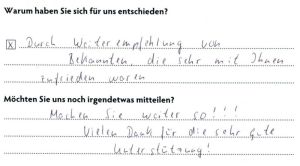 Warum haben Sie sich für uns entschieden?
Durch Weiterempfehlung von
Bekannten, die sehr mit Ihnen
zufrieden waren
Möchten Sie uns noch irgendetwas mitteilen?
Machen Sie weiter so!!!
Vielen Dank für die sehr gute
Unterstützung!